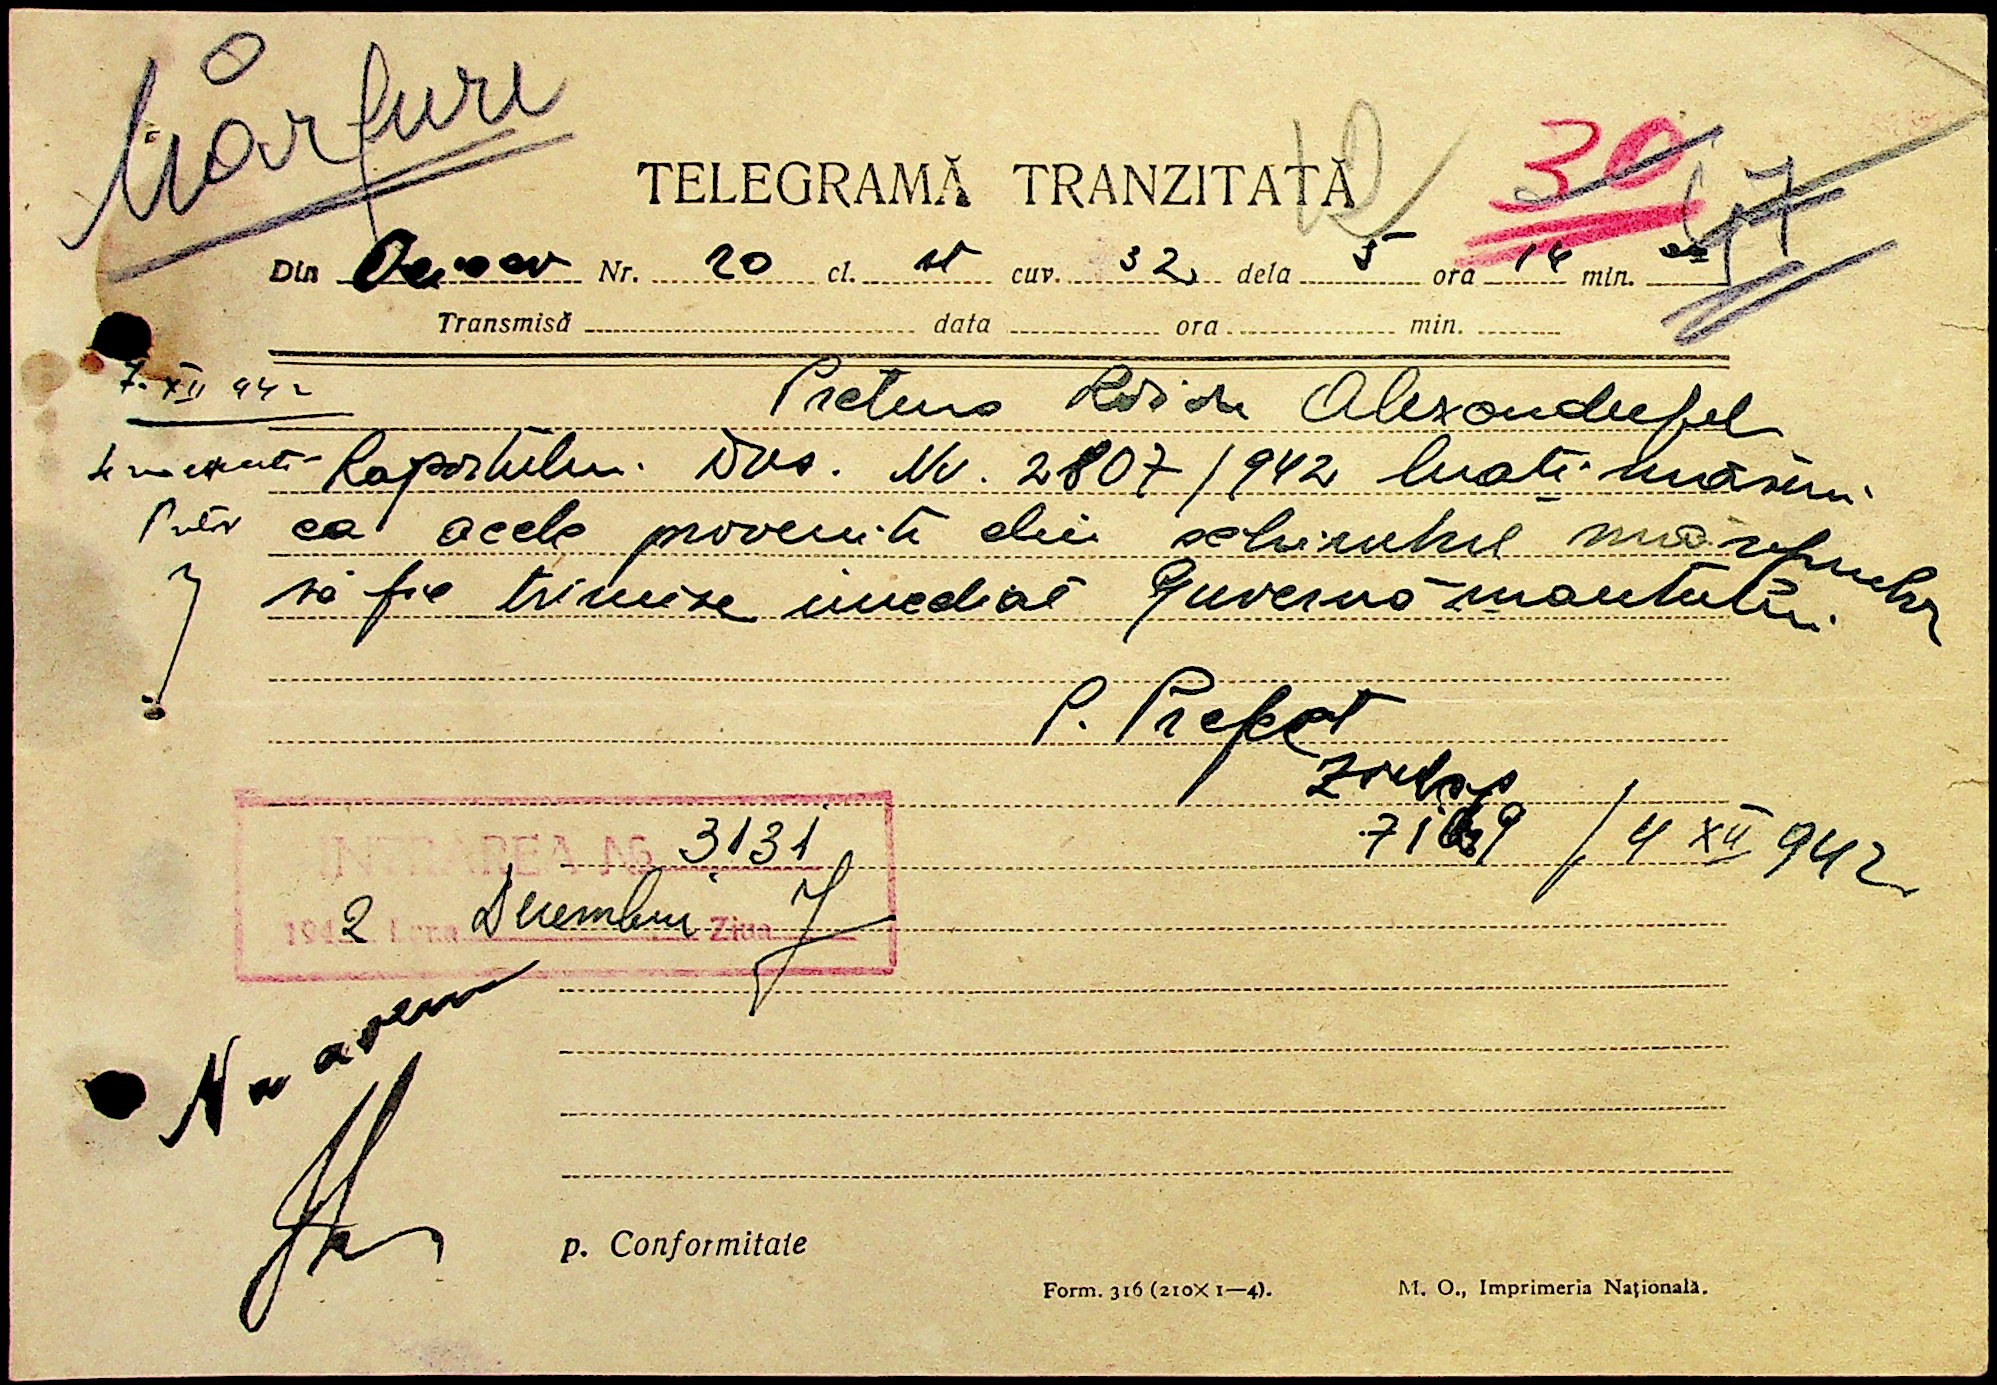 Mărfuri
TELEGRAMĂ TRANZITATĂ
30 17
Din Nr. 20 cl. st cuv. 32 dela 5 ora 14 min.
Transmisă data ora min.
7. XII 942
Pretura
Raportului Dvs. Nr. 2807/942 luați măsuri
ca acele provenite din schimbul mărfurilor
să fie trimise imediat Guvernământului
P. Prefect
/ 4 XII 942
INTRAREA No. 3131
1942 Luna Decembrie Ziua 7
Nu avem
p. Conformitate
Form. 316 (210X1—4).
M. O., Imprimeria Națională.